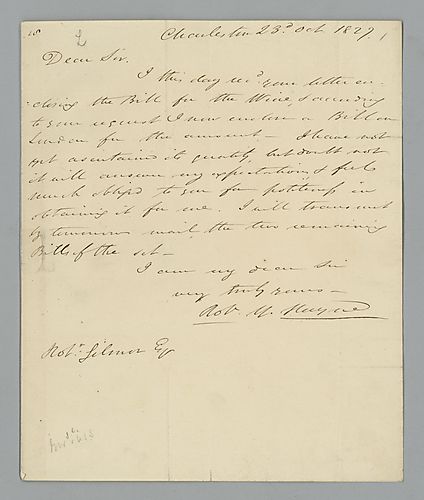 Charleston 23d Oct 1827.
Dear Sir.
I this day recd. your letter en-
closing the Bill for the Wine, & according
to your request I now enclose a Bill on
London for the amount - I have not
yet ascertained its quality, but doubt not
it will answer my expectations, & feel
much obliged to you for politeness in
obtaining it for me. I will transmit
by tomorrows mail, the two remaining
Bills of the set -
I am my dear Sir
very truly yours -
Rob. Y. Hayne
Robt. Gilmor Esq